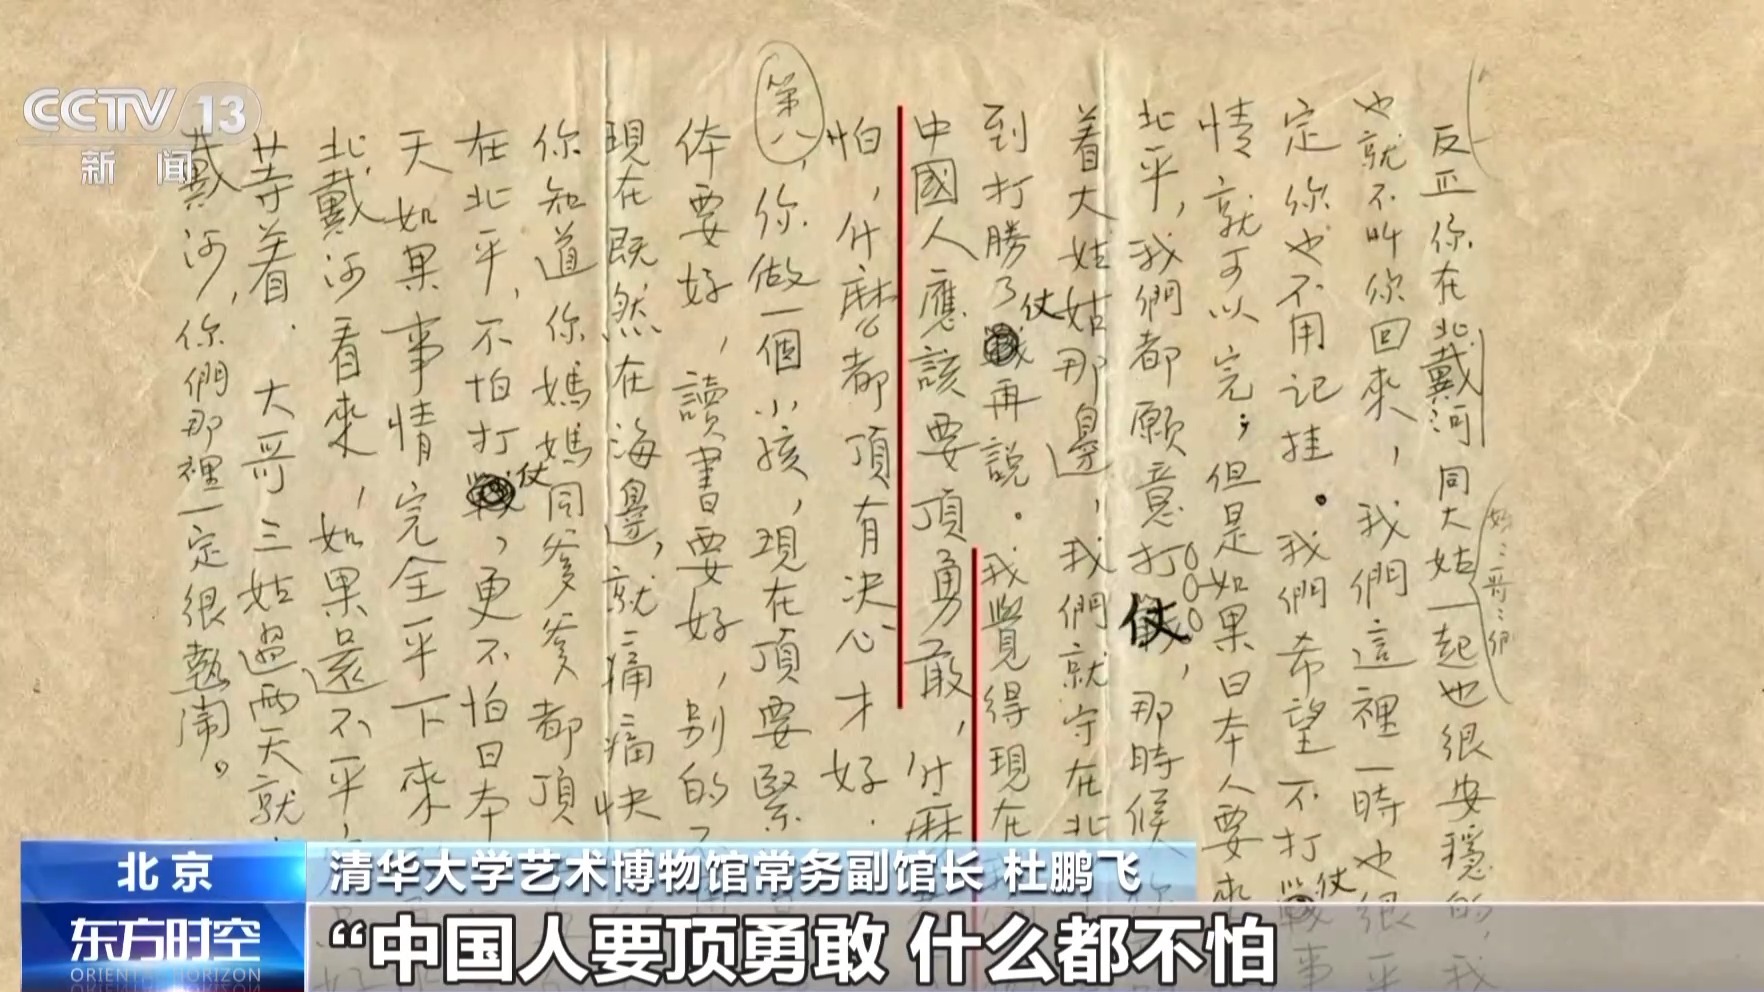 CCTV 13
新闻
反正你在北戴河同大姑一起也很安穩的,我
也就不叫你回來,我們這裡一時也很平
定你也不用记挂。我們希望不打仗事
情就可以完;但是如果日本人要來
北平,我們都願意打仗,那時候你
着大姑姑那邊,我們就守在北
到打勝了仗再説。我覺得現在
中國人應該要頂勇敢,什麽
怕,什麽都頂有决心才好.
第八,你做一個小孩,現在頂要緊
体要好,讀書要好,別的
現在既然在海邊,就痛痛快
你知道你媽媽同爹爹都頂
在北平,不怕打仗,更不怕日本
天如果事情完全平下來
北戴河看來,如果還不平
等着.大哥三姑過两天就
戴河,你們那裡一定很熱闹。
北京
清华大学艺术博物馆常务副馆长 杜鹏飞
东方时空
ORIENTAL HORIZON
“中国人要顶勇敢 什么都不怕